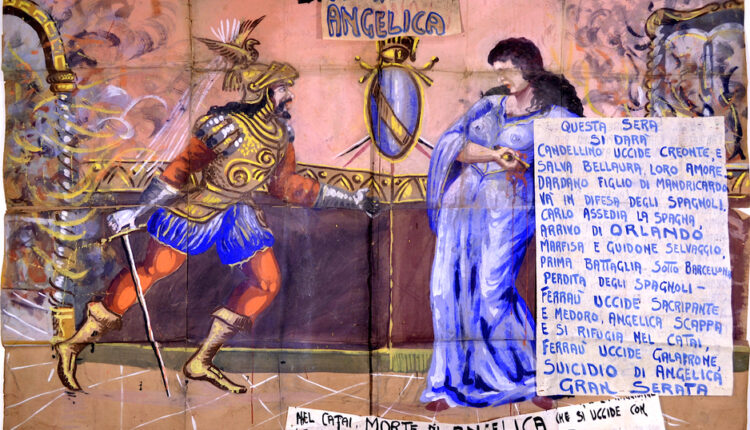 ANGELICA
QUESTA SERA
SI DARÀ
CANDELLINO UCCIDE CREONTE, E
SALVA BELLAURA, LORO AMORE,
DARDANO FIGLIO DI MANDRICARDO
VA' IN DIFESA DEGLI SPAGNOLI.
CARLO ASSEDIA LA SPAGNA
ARRIVO DI ORLANDO
MARFISA E GUIDONE SELVAGGIO.
PRIMA BATTAGLIA SOTTO BARCELLONA
PERDITA DEGLI SPAGNOLI -
FERRAÙ UCCIDE SACRIPANTE
E MEDORO, ANGELICA SCAPPA
E SI RIFUGIA NEL CATAI,
FERRAÙ UCCIDE GALAFRONE,
SUICIDIO DI ANGELICA
GRAN SERATA
NEL CATAI, MORTE DI ANGELICA CHE SI UCCIDE CON